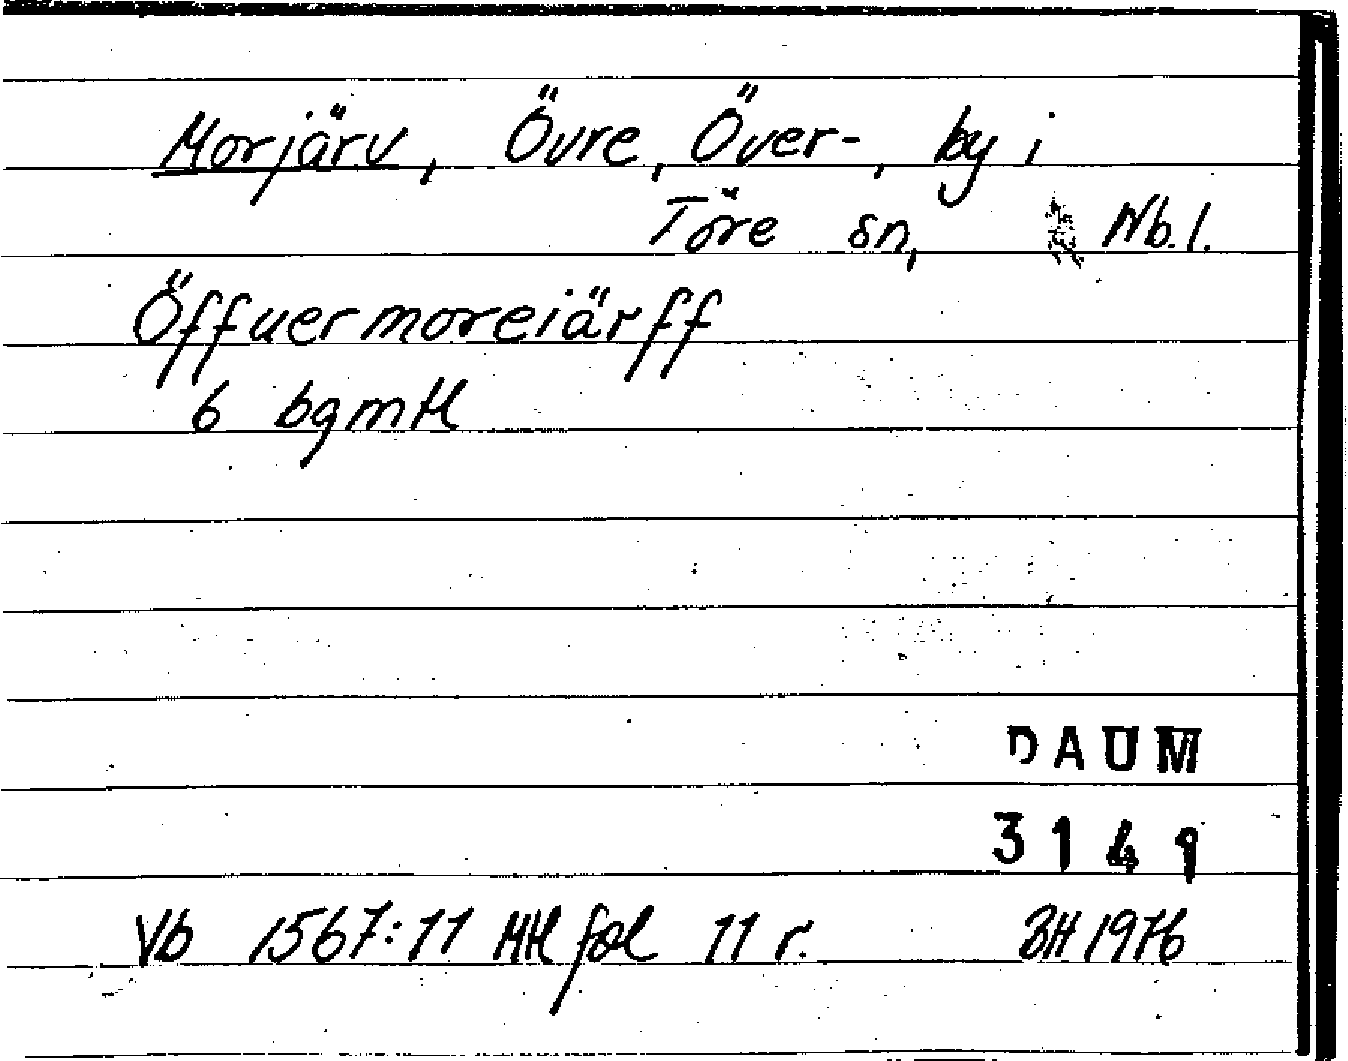 Morjärv, Övre, Över-, by i
Töre sn, Nb.l.
Öffuermoreiärff
6 bgmtl
DAUM
3141
Vb 1567:11 Mtl fol 11 r. BH 1976